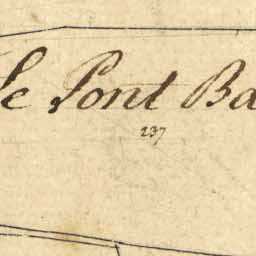 Le Pont Ba
237